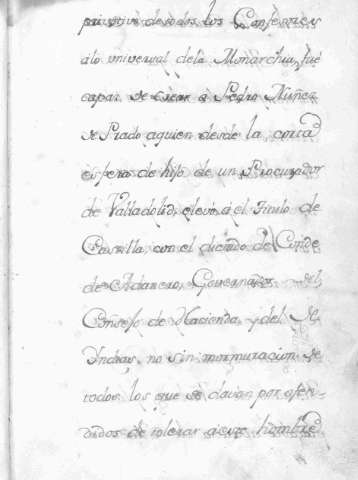 privative de todos los Consexeros
alo universal dela Monarchia, fué
capaz de crear a Pedro Nuñez
de Prado aquien desde la corta
esfera de hijo de un Procurador
de Valladolid, elevó á el Titulo de
Castilla, con el dictado de Conde
de Adanero, Governador del
Consejo de Hacienda, y del de
Indias, no sin murmuracion de
todos los que se davan por ofen-
didos de tolerar a este hombre